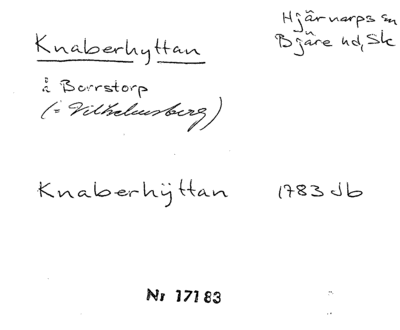 Hjärnarps sn
Bjäre hd, Sk
Knaberhyttan
i Borrstorp
(= Vilhelmsberg)
Knaberhÿttan 1783 Jb
Nr 17183